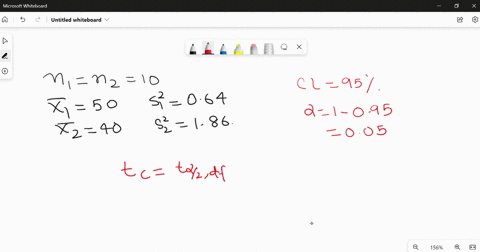 Microsoft Whiteboard
Untitled whiteboard
n₁ = n₂ = 10
x̄₁ = 50 s₁² = 0.64
x̄₂ = 40 s₂² = 1.86.
CL = 95%.
α = 1 - 0.95
= 0.05
t c = tα/2, df
156%